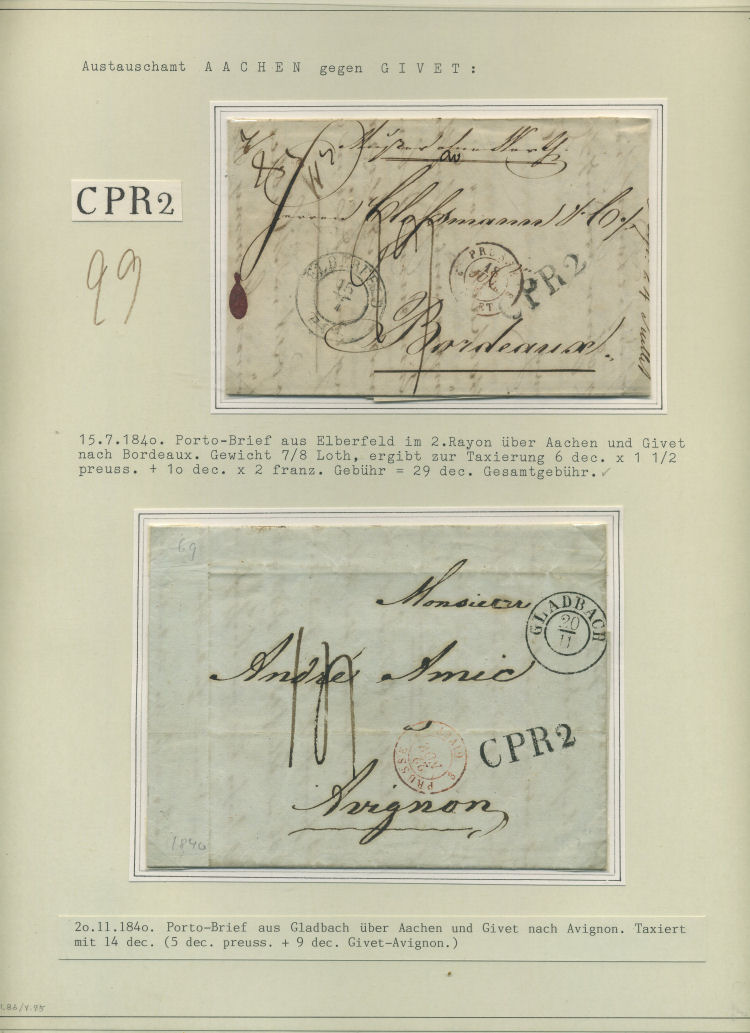 Austauschamt A A C H E N gegen G I V E T :
CPR2
99
Muster ohne Werth
20
Herren
ELBERFELD
15
7
PRUSSE
18
CPR2
Bordeaux
15.7.184o. Porto-Brief aus Elberfeld im 2.Rayon über Aachen und Givet
nach Bordeaux. Gewicht 7/8 Loth, ergibt zur Taxierung 6 dec. x 1 1/2
preuss. + 1o dec. x 2 franz. Gebühr = 29 dec. Gesamtgebühr. ✓
69
Monsieur
GLADBACH
20
11
André Amic
à
PRUSSE
GIVET
22
NOV
CPR2
Avignon
1840
2o.11.184o. Porto-Brief aus Gladbach über Aachen und Givet nach Avignon. Taxiert
mit 14 dec. (5 dec. preuss. + 9 dec. Givet-Avignon.)